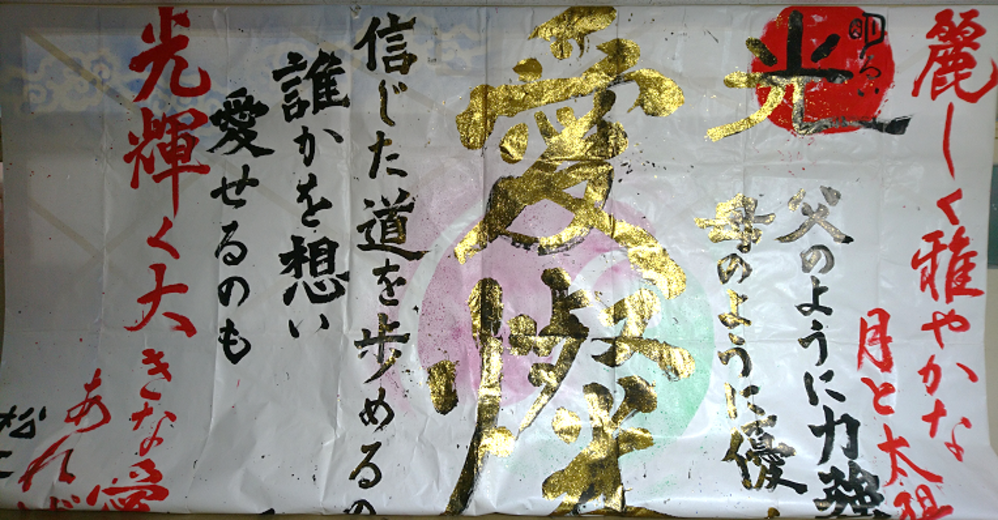 麗しく雅やかな
月と太
明るい
光
父のように力強
母のように優
愛燦
信じた道を歩めるの
誰かを想い
愛せるのも
光輝く大きな愛
あれば
松